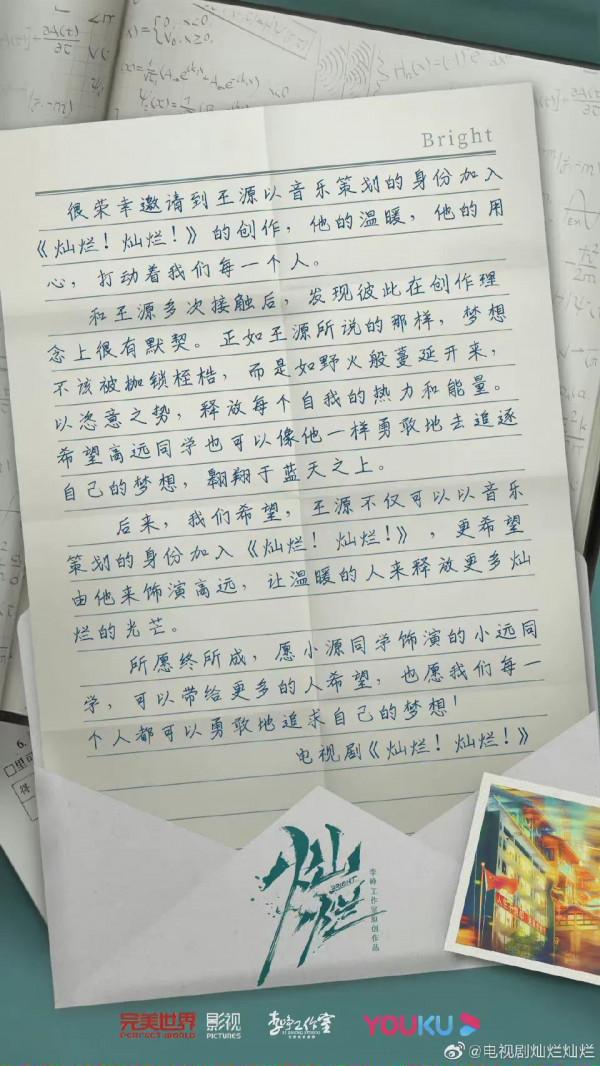 Bright
很荣幸邀请到王源以音乐策划的身份加入
《灿烂！灿烂！》的创作，他的温暖，他的用
心，打动着我们每一个人。
和王源多次接触后，发现彼此在创作理
念上很有默契。正如王源所说的那样，梦想
不该被枷锁桎梏，而是如野火般蔓延开来，
以恣意之势，释放每个自我的热力和能量。
希望高远同学也可以像他一样勇敢地去追逐
自己的梦想，翱翔于蓝天之上。
后来，我们希望，王源不仅可以以音乐
策划的身份加入《灿烂！灿烂！》，更希望
由他来饰演高远，让温暖的人来释放更多灿
烂的光芒。
所愿终所成，愿小源同学饰演的小远同
学，可以带给更多的人希望，也愿我们每一
个人都可以勇敢地追求自己的梦想！
电视剧《灿烂！灿烂！》
灿烂
BRIGHT
李峥工作室原创作品
完美世界 影视
PERFECT WORLD PICTURES
李峥工作室
YOUKU
@电视剧灿烂灿烂